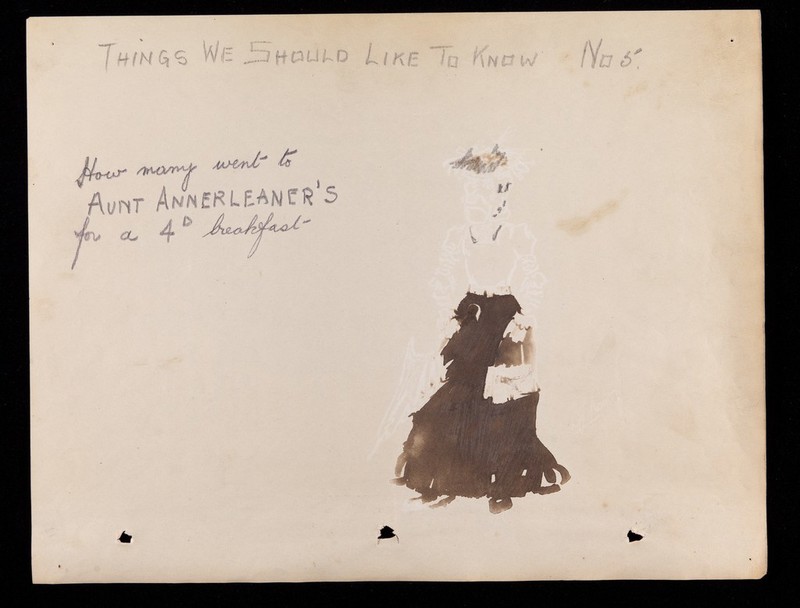 THINGS WE SHOULD LIKE TO KNOW No 5.
How many went to
AUNT ANNERLEANER'S
for a 4D breakfast